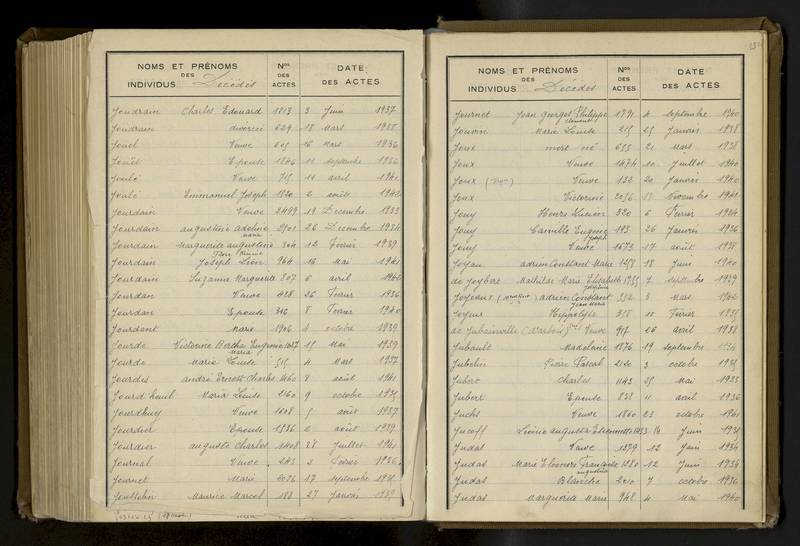 NOMS ET PRÉNOMS DES INDIVIDUS Décédés
Nos DES ACTES
DATE DES ACTES
Joudrain Charles Edouard 1813 3 Juin 1937
Joudrain divorcée 629 18 Mars 1938
Jouel Veuve 605 16 Mars 1936
Jouët Epouse 1846 11 septembre 1936
Joulé Veuve 715 11 avril 1941
Joulé Emmanuel Joseph 1820 2 août 1940
Jourdain Veuve 2499 19 Decembre 1933
Jourdain augustine adeline 2501 26 Decembre 1934
Maria
Jourdain Marguerite augustine 304 12 Fevrier 1939
Jourdain Joseph Léon 964 16 Mai 1941
Jourdain Suzanne Marguerite 807 6 avril 1940
Jourdan Veuve 428 26 Fevrier 1936
Jourdan Epouse 316 8 Fevrier 1940
Jourdant Marie 1906 4 octobre 1939
Jourde Victorine Berthe Eugenie 1037 15 Mai 1939
Maria
Jourde Marie Louise 515 4 Mars 1937
Jourdes andré Ernest Charles 1460 8 août 1941
Jourd'heuil Maria Louise 2160 9 octobre 1935
Jourdhuy Veuve 1608 5 août 1937
Jourdier Epouse 1536 2 août 1939
Jourdier auguste Charles 1408 28 Juillet 1941
Journal Veuve 243 2 Fevrier 1936
Journet Marie 2076 17 septembre 1935
Jousselin Maurice Marcel 183 27 Janvier 1939
NOMS ET PRÉNOMS DES INDIVIDUS Décédés
Nos DES ACTES
DATE DES ACTES
Journet Jean georges Philippe 1791 4 septembre 1940
Clement
Jouvin Marie Louise 215 25 Janvier 1938
Joux mort né 655 21 Mars 1938
Joux Veuve 1474 10 Juillet 1940
Joux Veuve 132 20 Janvier 1940
Joux Victorine 2056 Novembre 1941
Jouy Henri Lucien 320 6 Fevrier 1934
Jouy Camille Eugène 193 26 Janvier 1936
Joseph
Jouy Veuve 1673 17 août 1938
Joyau adrien Constant Marie 1258 18 Juin 1940
de Joybert Mathilde Marie Elisabeth 1755 7 septembre 1939
Joséphine
Joyeux adrien Constant 352 3 Mars 1942
Jean Marie
Joyeux Hippolyte 318 10 Fevrier 1935
de Jubainville Veuve 917 26 avril 1938
Jubault Madeleine 1876 19 septembre
Jubelin Pierre Pascal 2120 3 octobre 1935
Jubert Charles 1143 25 Mai 1933
Jubert Epouse 838 11 avril 1936
Juchs Veuve 1860 23 octobre 1941
Jucoff Léonie augusta Etiennette 1433 14 Juin 1935
Judas Veuve 1279 12 Juin 1934
Judas Marie Eléonore Françoise 1280 12 Juin 1934
augustine
Judas Blanche 2010 7 octobre 1936
Judas Marguerite Marie 948 4 Mai 1940